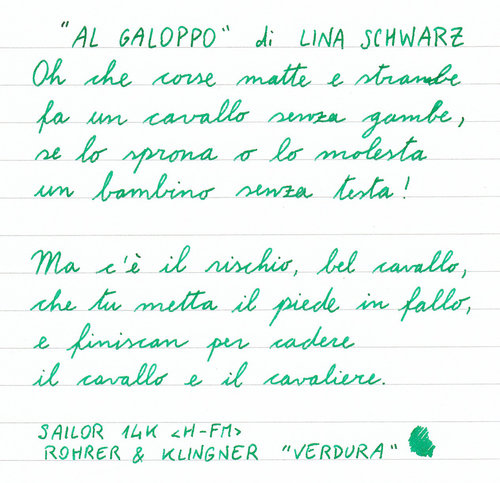 "AL GALOPPO" di LINA SCHWARZ
Oh che corse matte e strambe
fa un cavallo senza gambe,
se lo sprona o lo molesta
un bambino senza testa!
Ma c'è il rischio, bel cavallo,
che tu metta il piede in fallo,
e finiscan per cadere
il cavallo e il cavaliere.
SAILOR 14K <H-FM>
ROHRER & KLINGNER "VERDURA"